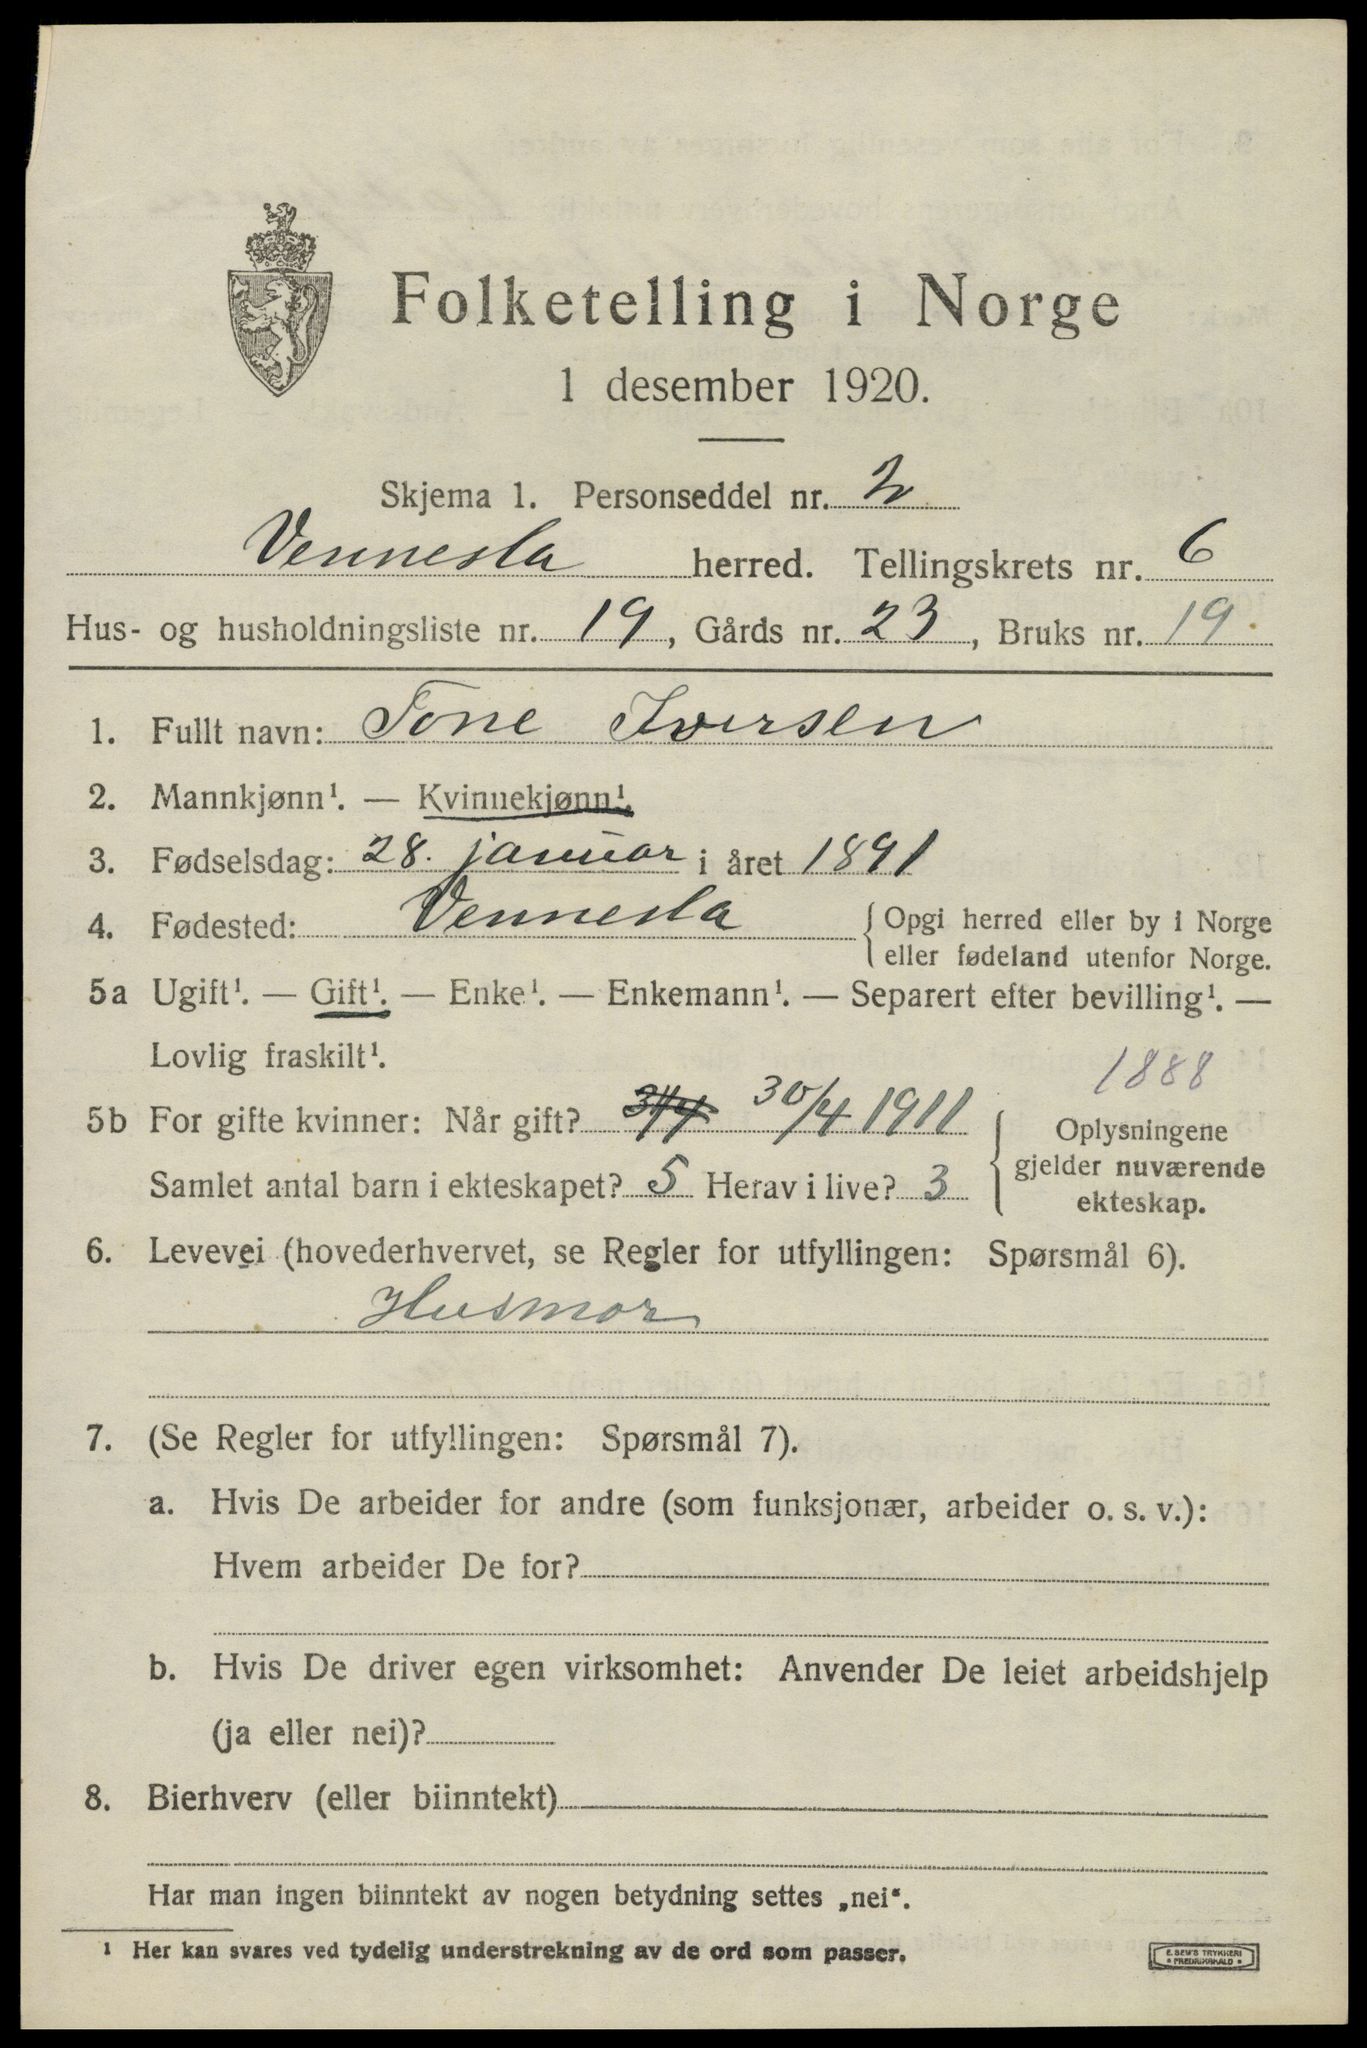 Folketelling i Norge
1 desember 1920.
Skjema 1. Personseddel nr. 2
Vennesla herred. Tellingskrets nr. 6
Hus- og husholdningsliste nr. 19, Gårds nr. 23, Bruks nr. 19.
1. Fullt navn: Tone Iversen
2. Mannkjønn¹. — Kvinnekjønn¹.
3. Fødselsdag: 28. januar i året 1891
4. Fødested: Vennesla { Opgi herred eller by i Norge
eller fødeland utenfor Norge.
5a Ugift¹. — Gift¹. — Enke¹. — Enkemann¹. — Separert efter bevilling¹. —
Lovlig fraskilt¹.
1888
5b For gifte kvinner: Når gift? 30/4 1911 { Oplysningene
gjelder nuværende
Samlet antal barn i ekteskapet? 5 Herav i live? 3
ekteskap.
6. Levevei (hovederhvervet, se Regler for utfyllingen: Spørsmål 6).
Husmor
7. (Se Regler for utfyllingen: Spørsmål 7).
a. Hvis De arbeider for andre (som funksjonær, arbeider o. s. v.):
Hvem arbeider De for?
b. Hvis De driver egen virksomhet: Anvender De leiet arbeidshjelp
(ja eller nei)?
8. Bierhverv (eller biinntekt)
Har man ingen biinntekt av nogen betydning settes „nei“.
¹ Her kan svares ved tydelig understrekning av de ord som passer.
E. SEM'S TRYKKERI
* FREDRIKSHALD *